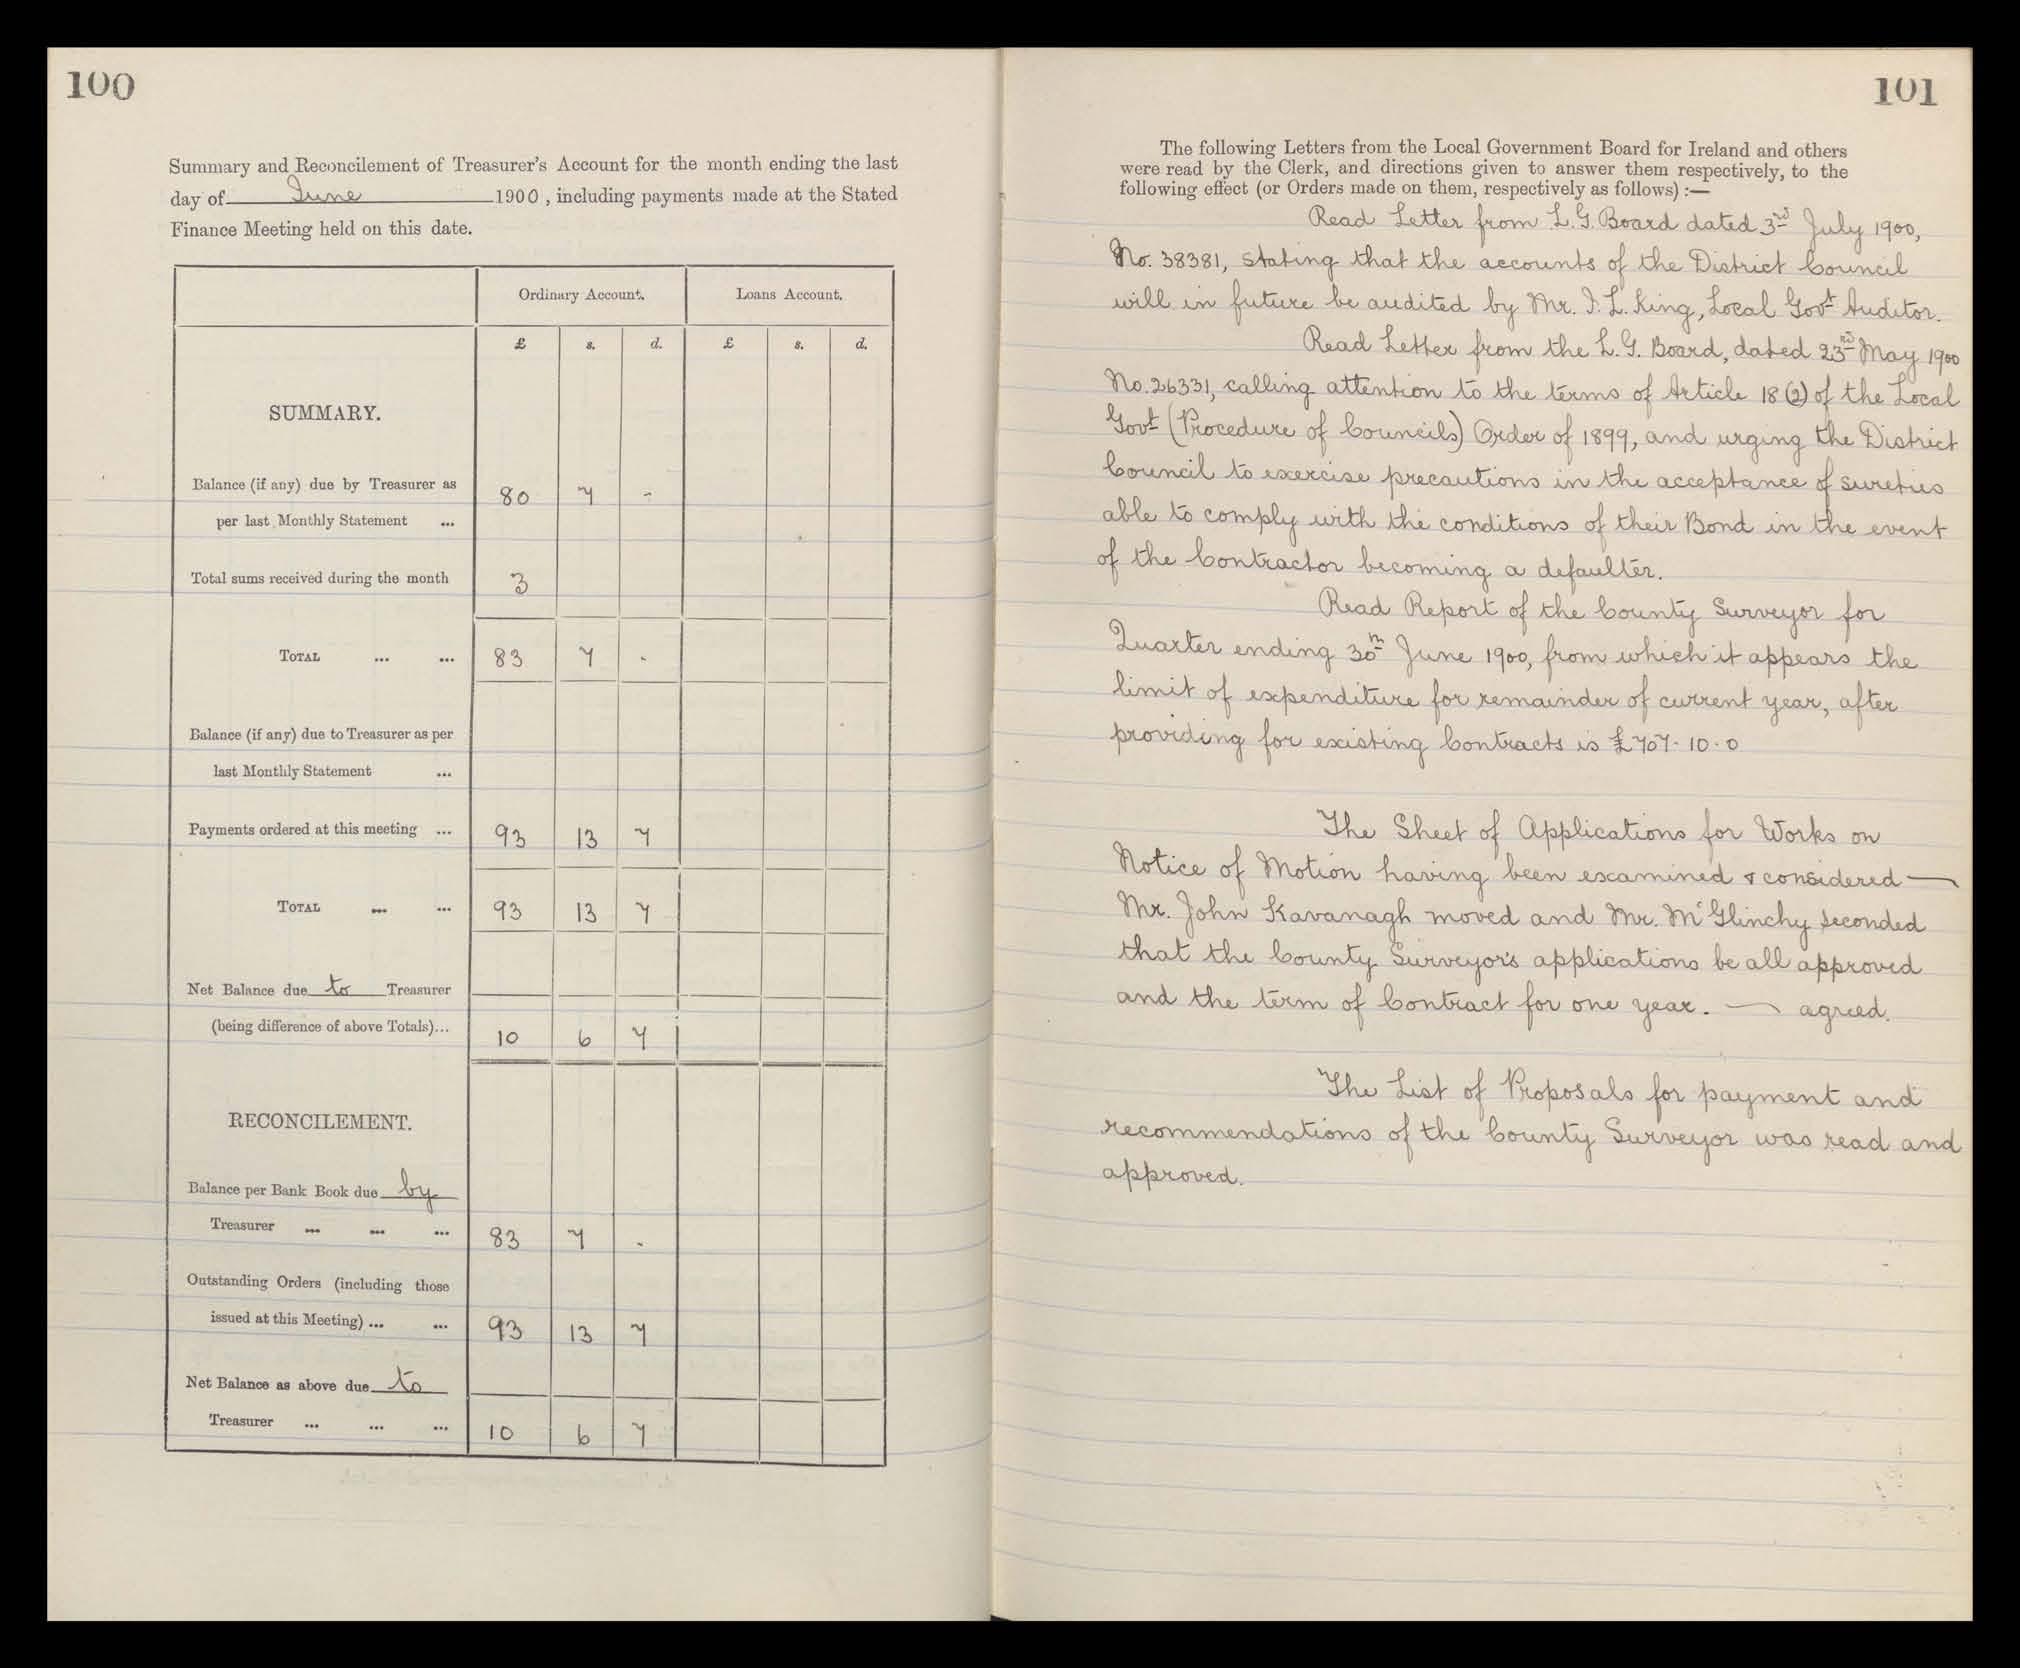 100
Summary and Reconcilement of Treasurer's Account for the month ending the last
day of June 1900, including payments made at the Stated
Finance Meeting held on this date.
Ordinary Account. Loans Account.
£ s. d. £ s. d.
SUMMARY.
Balance (if any) due by Treasurer as
per last Monthly Statement ... 80 7 -
Total sums received during the month 3
TOTAL ... ... 83 7 -
Balance (if any) due to Treasurer as per
last Monthly Statement ...
Payments ordered at this meeting ... 93 13 7
TOTAL ... ... 93 13 7
Net Balance due to Treasurer
(being difference of above Totals)... 10 6 7
RECONCILEMENT.
Balance per Bank Book due by
Treasurer ... ... ... 83 7 -
Outstanding Orders (including those
issued at this Meeting) ... ... 93 13 7
Net Balance as above due to
Treasurer ... ... ... 10 6 7
101
The following Letters from the Local Government Board for Ireland and others
were read by the Clerk, and directions given to answer them respectively, to the
following effect (or Orders made on them, respectively as follows) :—
Read Letter from L.G. Board dated 3rd July 1900,
No. 38381, stating that the accounts of the District Council
will in future be audited by Mr. I. L. King, Local Govt Auditor.
Read Letter from the L.G. Board, dated 23rd May 1900
No. 26331, calling attention to the terms of Article 18 (2) of the Local
Govt (Procedure of Councils) Order of 1899, and urging the District
Council to exercise precautions in the acceptance of sureties
able to comply with the conditions of their Bond in the event
of the Contractor becoming a defaulter.
Read Report of the County Surveyor for
Quarter ending 30th June 1900, from which it appears the
limit of expenditure for remainder of current year, after
providing for existing Contracts is £707.10.0
The Sheet of Applications for Works on
Notice of Motion having been examined & considered —
Mr. John Kavanagh moved and Mr. McGlinchy seconded
that the County Surveyor's applications be all approved
and the term of Contract for one year. — agreed.
The List of Proposals for payment and
recommendations of the County Surveyor was read and
approved.